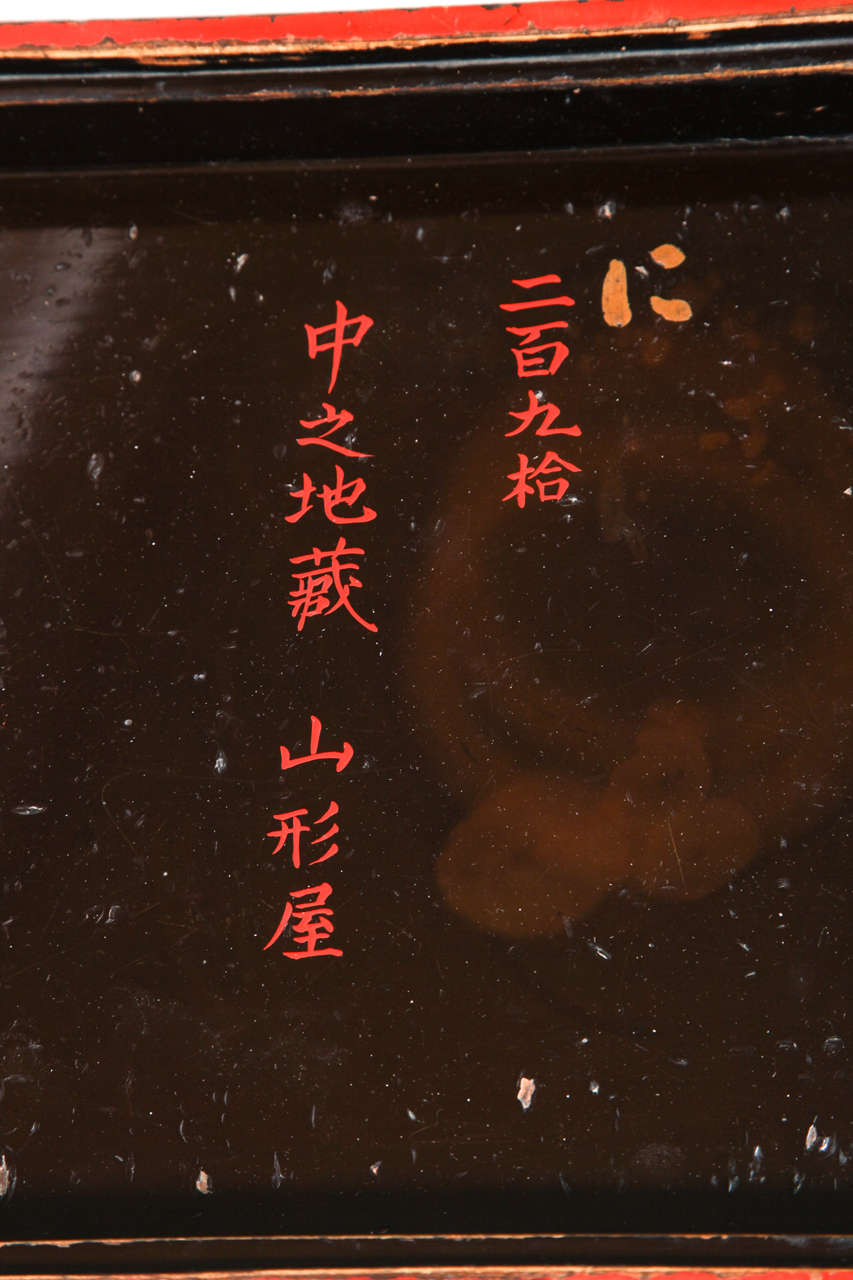 に
二百九拾
中之地蔵 山形屋